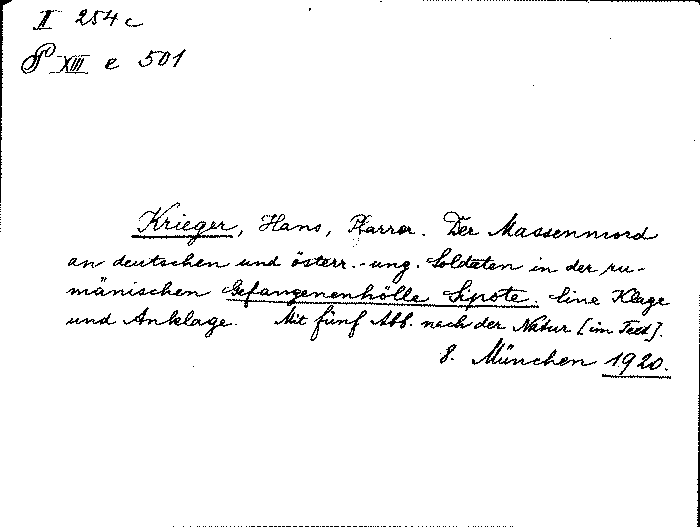 II 254 c
P XIII e 501
Krieger, Hans, Pfarrer. Der Massenmord
an deutschen und österr.-ung. Soldaten in der ru-
mänischen Gefangenenhölle Sipote. Eine Klage
und Anklage. Mit fünf Abb. nach der Natur [im Text].
8. München 1920.